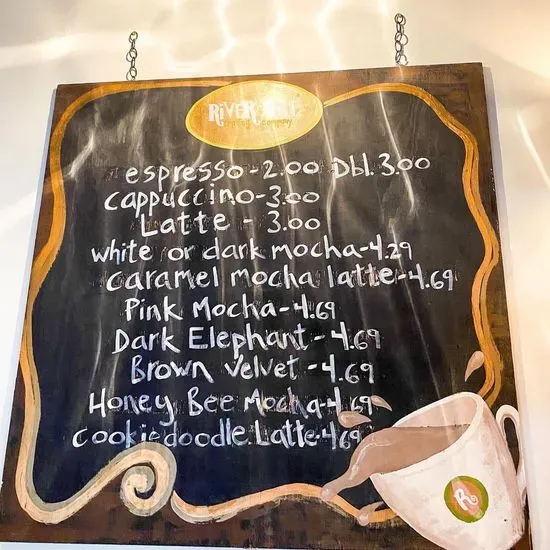 RiVER
company
espresso - 2.00 Dbl. 3.00
cappuccino - 3.00
Latte - 3.00
white or dark mocha - 4.29
caramel mocha latte - 4.69
Pink Mocha - 4.69
Dark Elephant - 4.69
Brown velvet - 4.69
Honey Bee Mocha - 4.69
Cookiedoodle Latte - 4.69
R